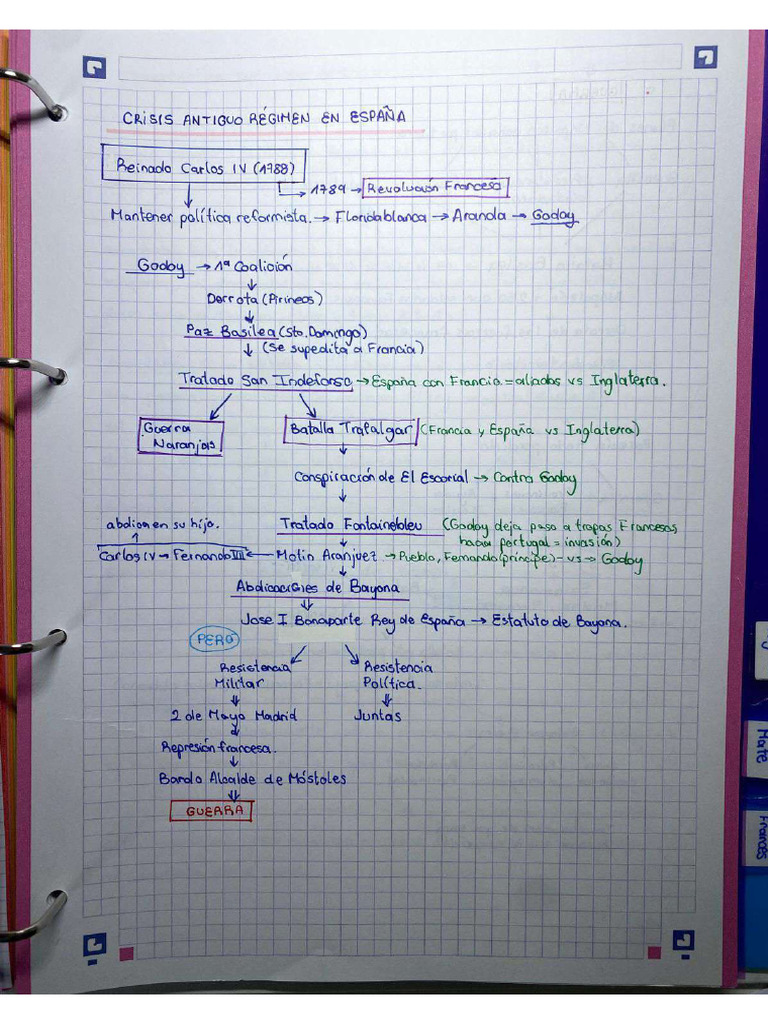 CRISIS ANTIGUO RÉGIMEN EN ESPAÑA
Reinado Carlos IV (1788)
1789 → Revolución Francesa
Mantener política reformista. → Floridablanca → Aranda → Godoy
Godoy → 1ª Coalición
Derrota (Pirineos)
Paz Basilea (Sto. Domingo)
(se supedita a Francia)
Tratado San Indefonso → España con Francia = aliados vs Inglaterra.
Guerra Naranjas
Batalla Trafalgar (Francia y España vs Inglaterra)
Conspiración de El Escorial → Contra Godoy
abdica en su hijo.
Tratado Fontainebleu (Godoy deja paso a tropas Francesas
hacia portugal = invasión)
Carlos IV → Fernando VII ← Motín Aranjuez → Pueblo, Fernando (príncipe) - vs → Godoy
Abdicaciones de Bayona
Jose I Bonaparte Rey de España → Estatuto de Bayona.
PERO
Resistencia Militar
Resistencia Política.
2 de Mayo Madrid
Juntas
Represión francesa.
Bando Alcalde de Móstoles
GUERRA
Mate
Francés